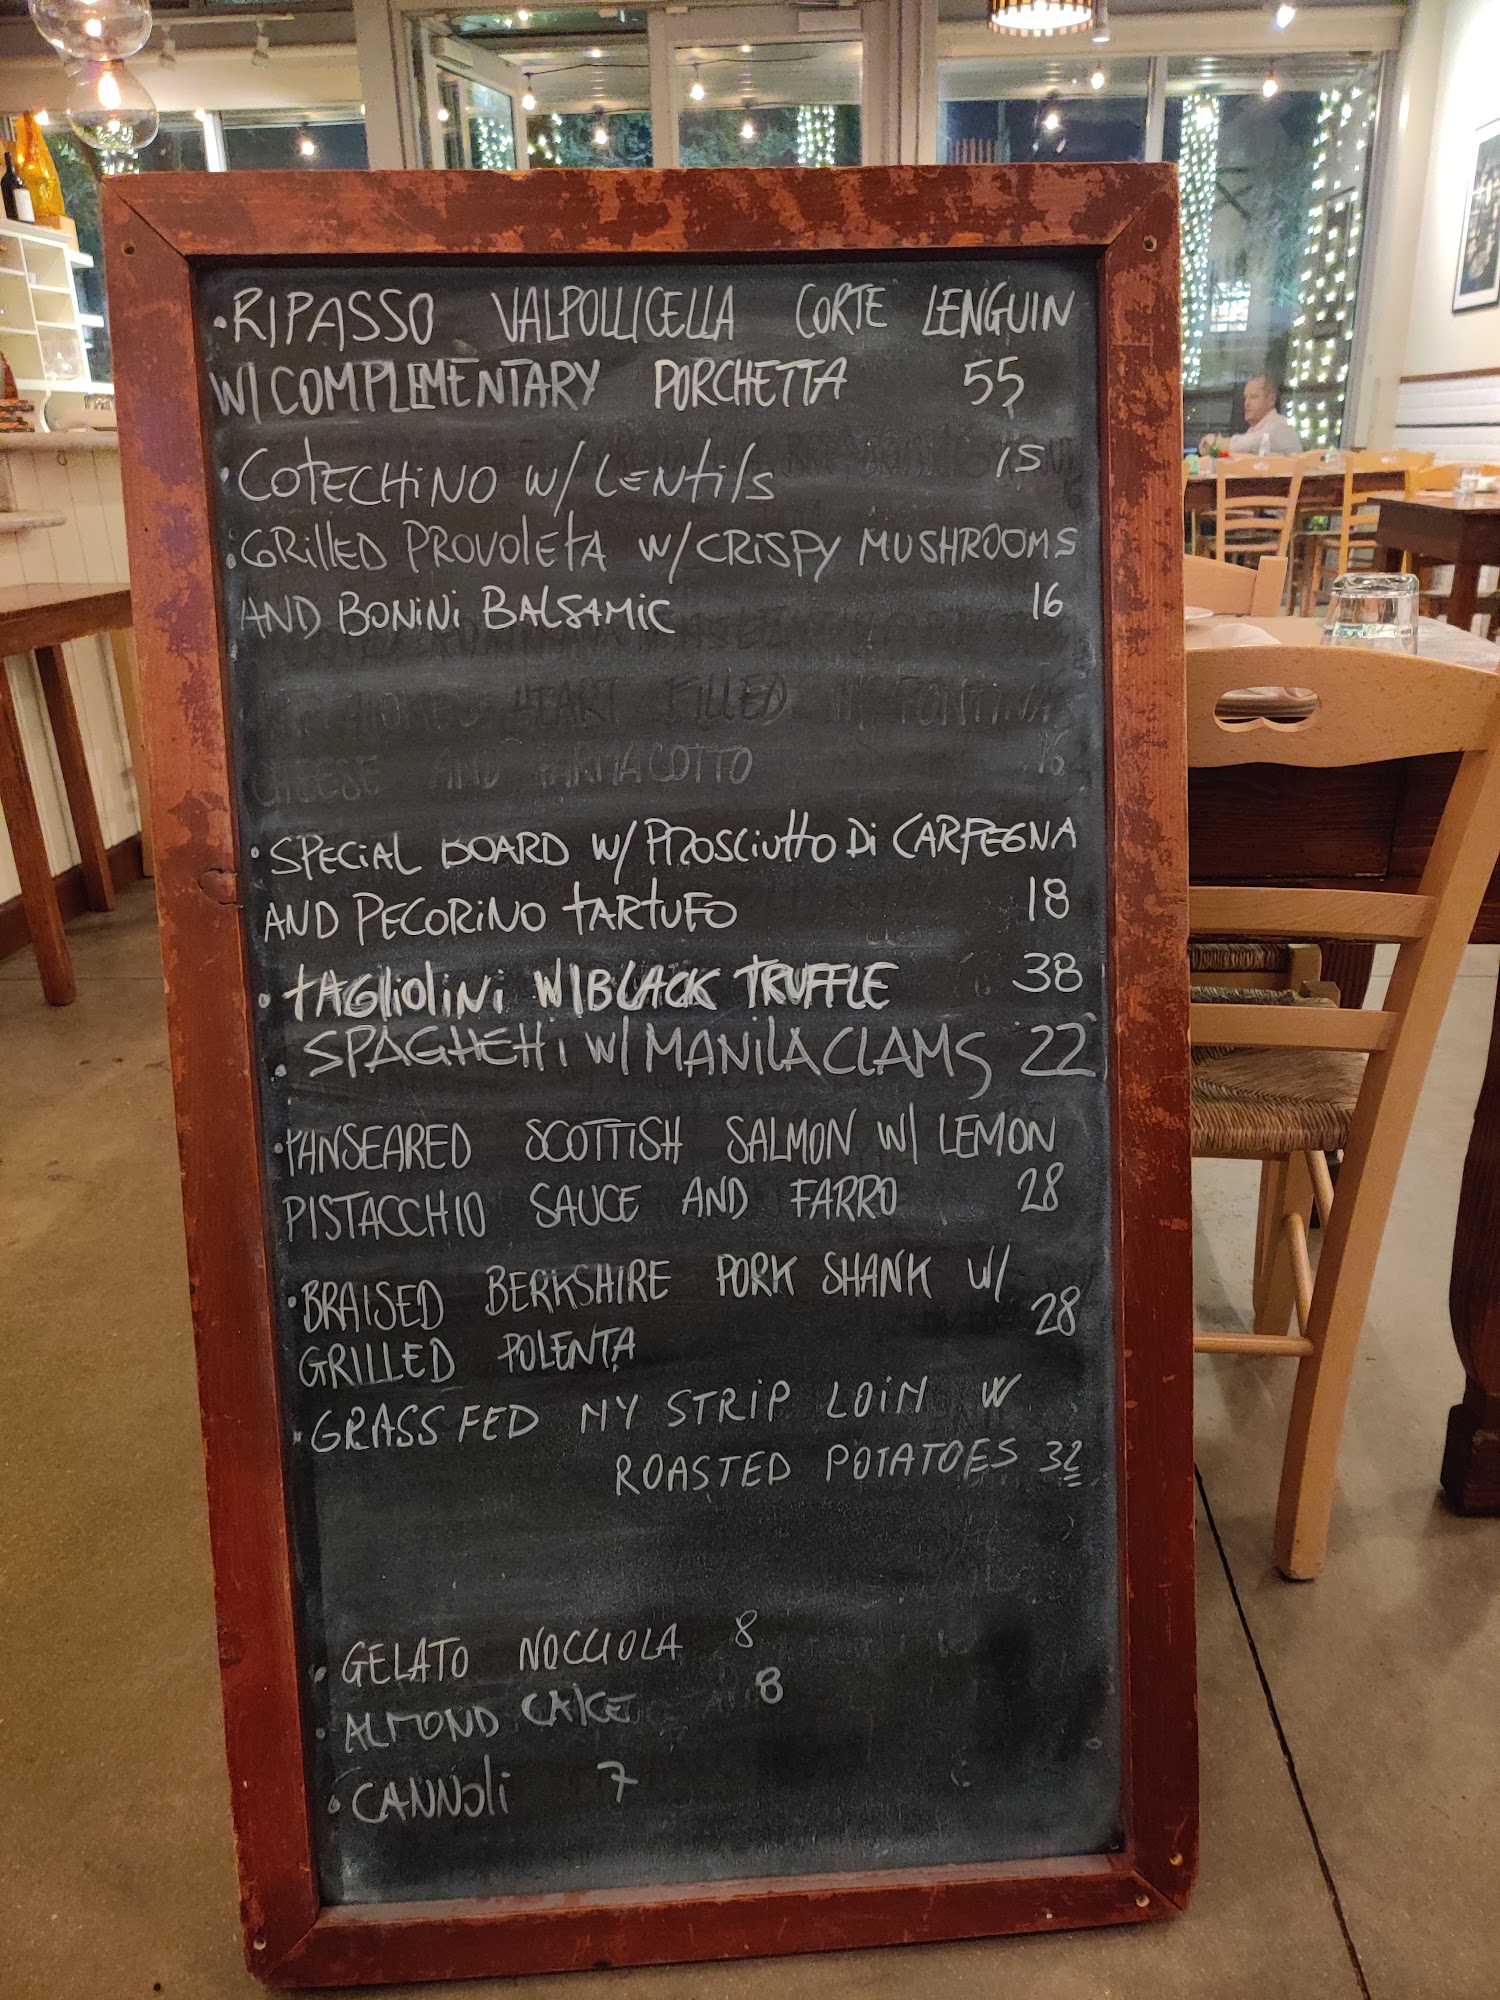 • RIPASSO VALPOLLICELLA CORTE LENGUIN
W/ COMPLEMENTARY PORCHETTA 55
• COTECHINO W/ LENTILS 15
• GRILLED PROVOLETA W/ CRISPY MUSHROOMS
AND BONINI BALSAMIC 16
HEART FILLED W/ FONTINA
CHEESE AND PARMACOTTO 16
• SPECIAL BOARD W/ PROSCIUTTO DI CARPEGNA
AND PECORINO TARTUFO 18
• TAGLIOLINI W/ BLACK TRUFFLE 38
• SPAGHETTI W/ MANILA CLAMS 22
• PANSEARED SCOTTISH SALMON W/ LEMON
PISTACCHIO SAUCE AND FARRO 28
• BRAISED BERKSHIRE PORK SHANK W/
GRILLED POLENTA 28
• GRASSFED NY STRIP LOIN W
ROASTED POTATOES 32
• GELATO NOCCIOLA 8
• ALMOND CAKE 8
• CANNOLI 7